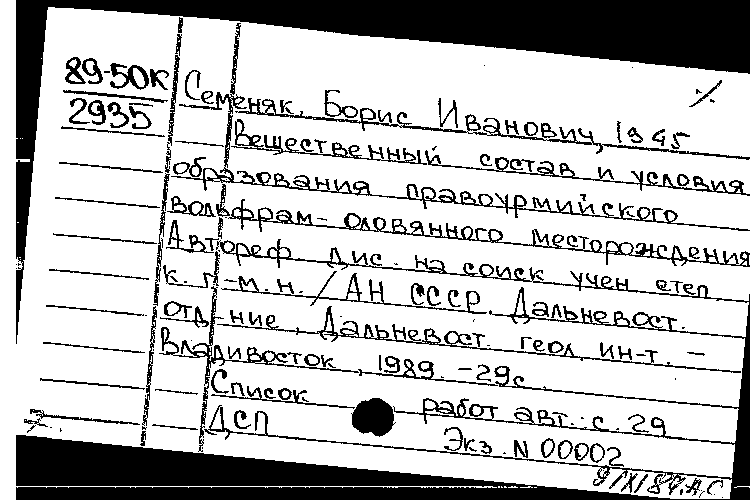 89-50К
2935
Семеняк, Борис Иванович, 1945
Вещественный состав и условия
образования правоурмийского
вольфрам-оловянного месторождения
Автореф. дис. на соиск учен степ
к. г.-м. н. / АН СССР, Дальневост.
отд-ние, Дальневост. геол. ин-т. –
Владивосток, 1989. – 29с.
Список работ авт.: с. 29
ДСП Экз. N 00002